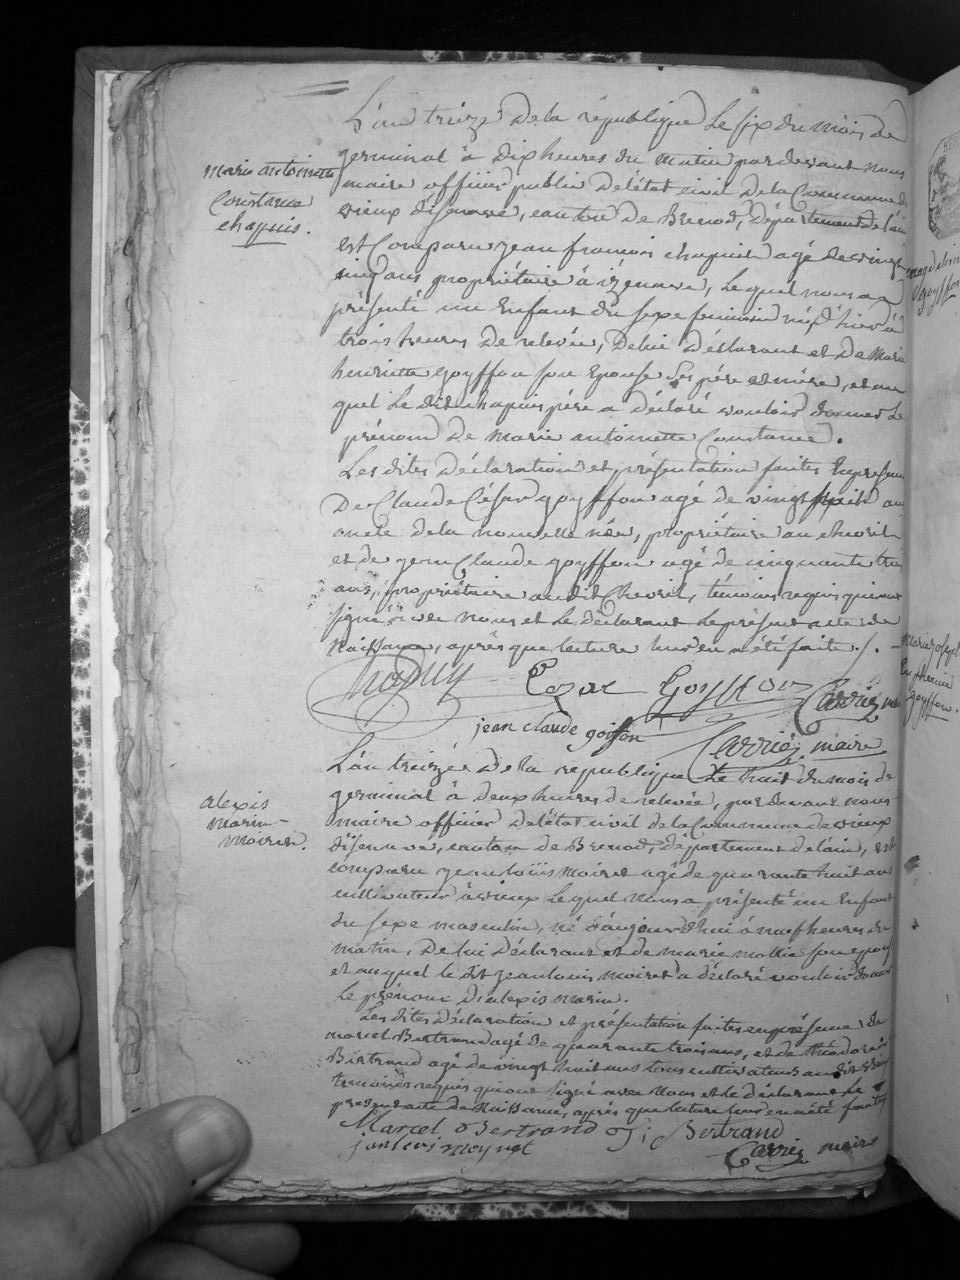 L'an treize de la république Le six du mois de
germinal à dix heures du matin pardevant nous
maire officier public de létat civil de la Commune de
vieux d'izenave, canton de Brenod, Département de l'ain
est Comparu jean françois chapuis agé de vingt
cinq ans propriétaire à izenave, Lequel nous a
présenté un Enfant du sexe feminin né d'hier à
trois heures de relevée, De lui déclarant et de Marie
henriette goyffon son Epouse Les père et mère, et au
quel Le dit chapuis père a déclaré vouloir donner Le
prénom de marie antoinette Constance.
Les dites déclaration et présentation faites En presence
De Claude César goyffon agé de vingt huit ans
oncle de la nouvelle née, propriétaire au chevril
et de jean Claude goyffon agé de cinquante trois
ans, propriétaire audit Chevril, témoins requis qui ont
signé avec nous et Le déclarant Le présent acte de
Naissance, après que lecture leur en a été faite /. -
marie antoinette
Constance
chapuis.
Chapuy Cezar Goyffon Carrier maire
jean claude goiffon
Carrier maire
L'an treize de la republique Le huit du mois de
germinal à deux heures de relevée, pardevant nous
maire officier de létat civil de la Commune de vieux
d'isenave, canton de Brenod, département de lain, est
comparu jean louis moiret agé de quarante huit ans
cultivateur à vieux Lequel nous a présenté un Enfant
du sexe masculin, né d'aujourd'hui à neuf heures du
matin, De lui déclarant et de marie mollie son epouse
et auquel le dit jean louis moiret a déclaré vouloir donner
Le prénom d'alexis marin.
Les dites déclaration et présentation faites en présence de
marcel Bertrand agé de quarante trois ans, et de théodore
Bertrand agé de vingt huit ans tous cultivateurs au dit vieux
temoins requis qui ont signé avec nous et le déclarant Le
present acte de Naissance, après que lecture leur en a été faite
alexis
marin
moiret.
Marcel Bertrand T: Bertrand
jan louis moynet
Carrier maire